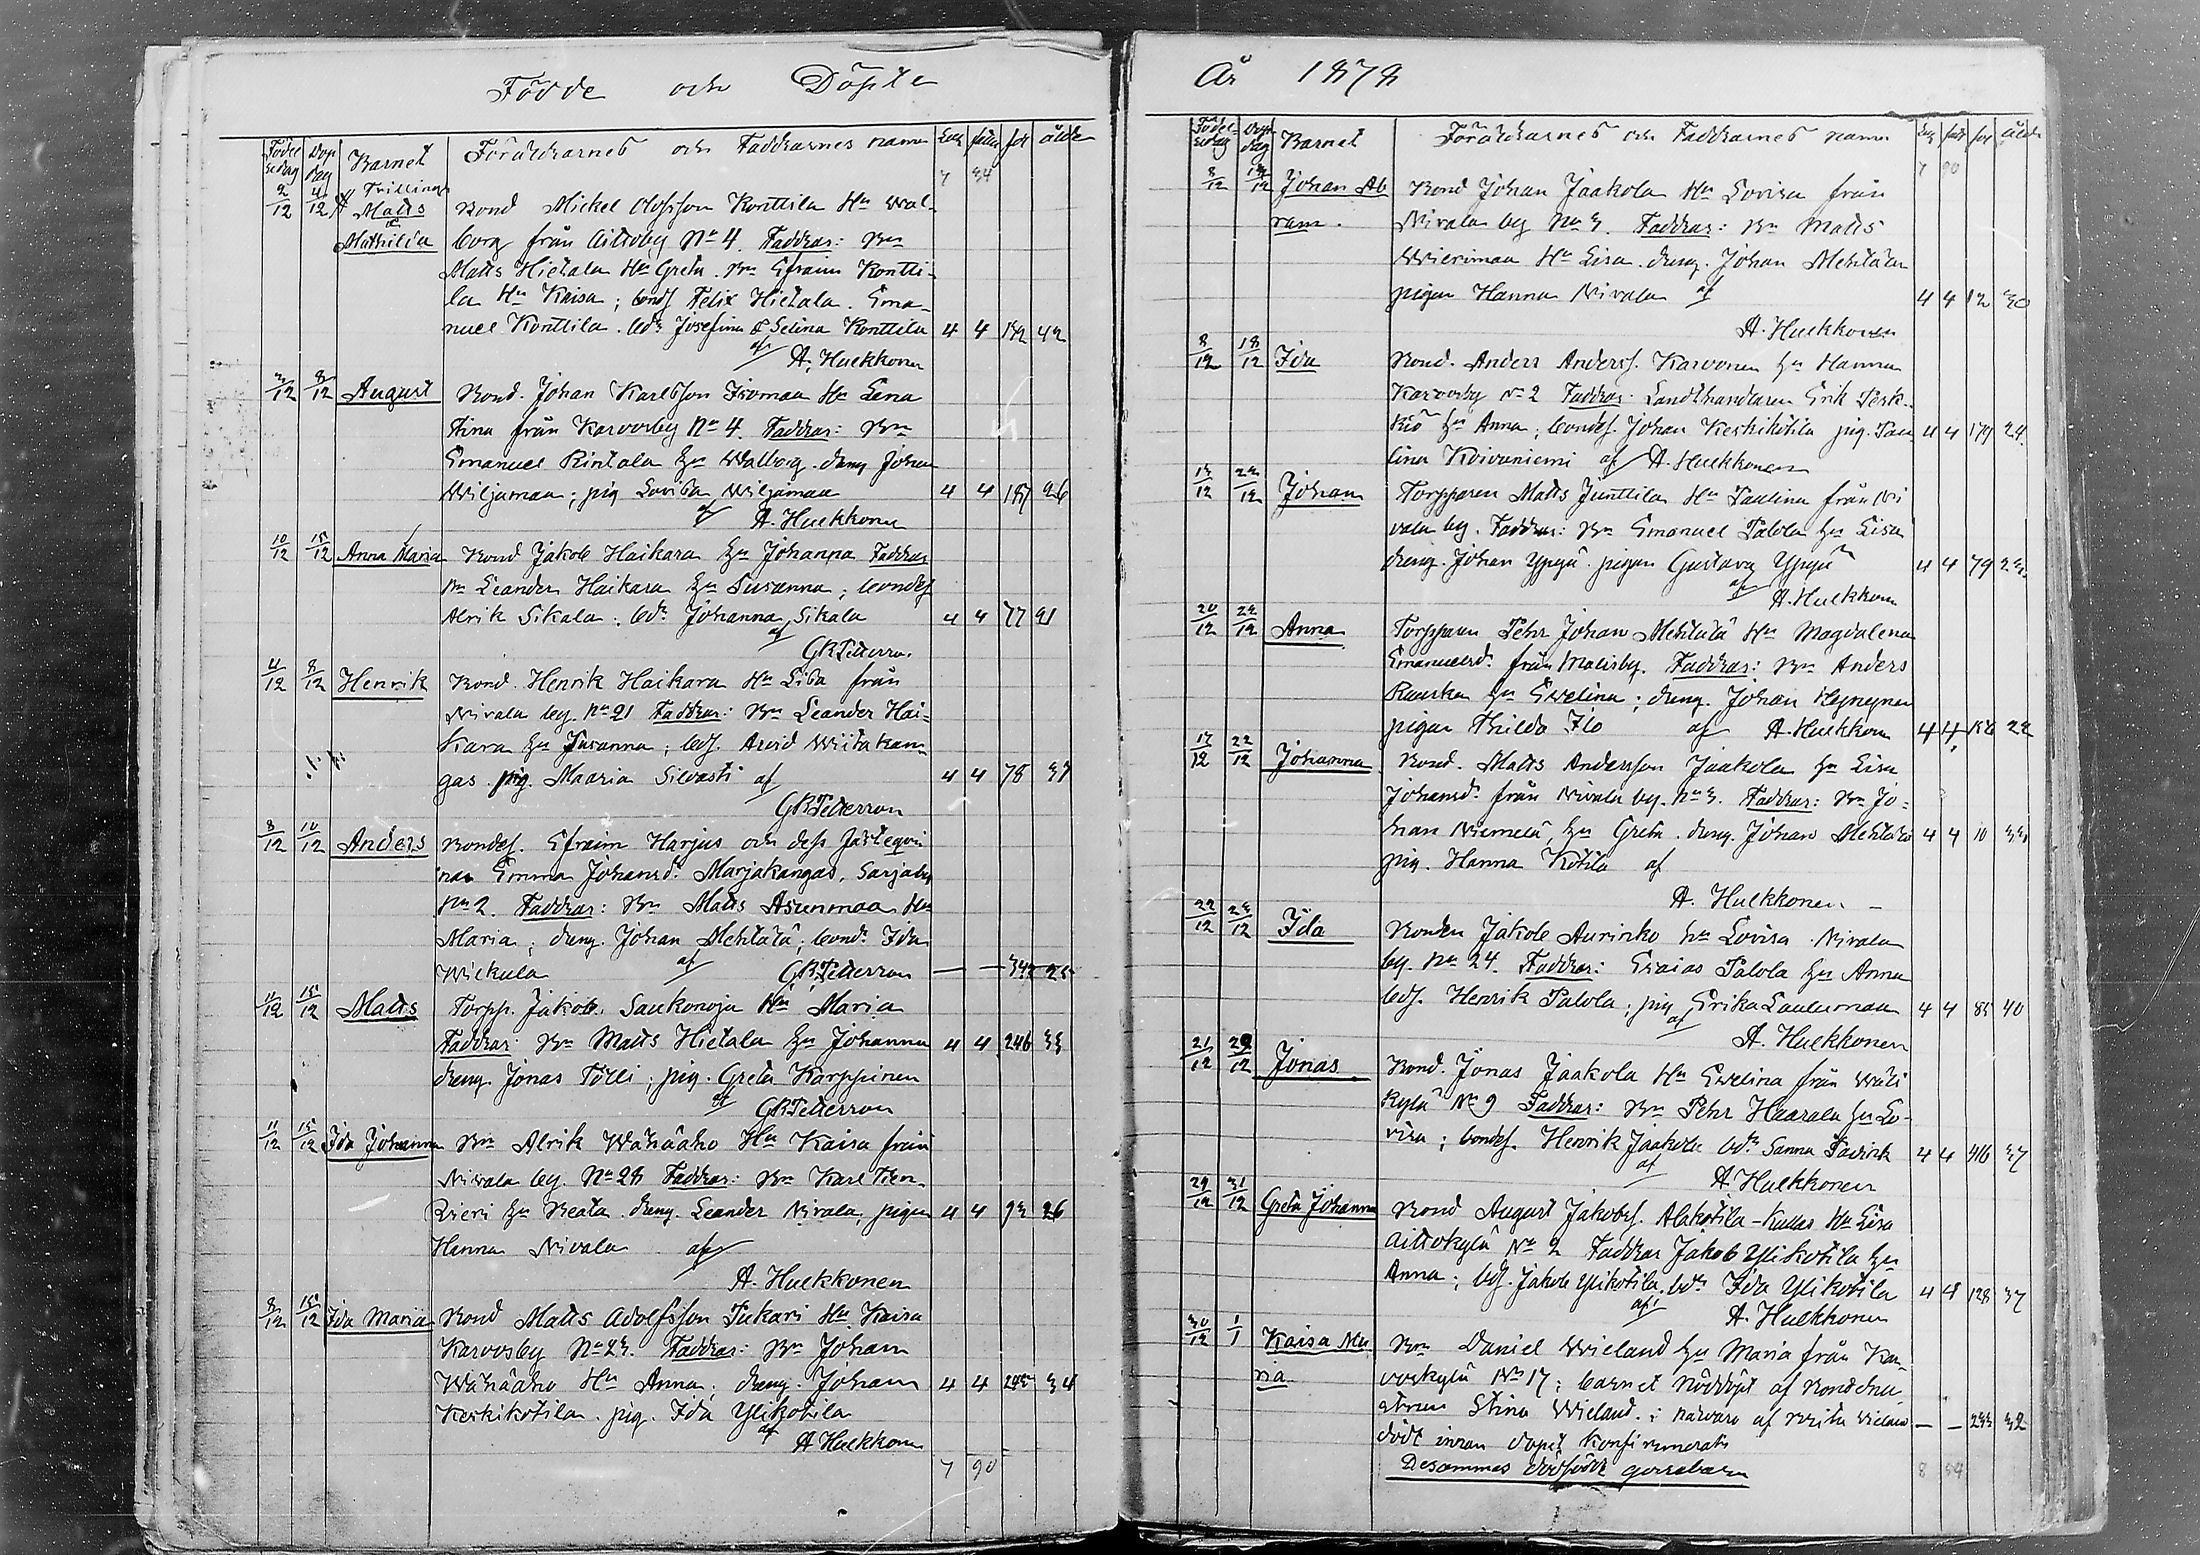 Födde och Döpte
Födel sedag Dop dag Barnet Föräldrarnes och Faddrarnes namn
2/12 4/12 Trillingar Matts & Mathilda
Bond Mickel Olofsson Konttila Hu Wal-
borg från Aittoby No 4. Faddrar: Bn
Matts Hietala Hu Greta. Bn Efraim Kontti-
la Hu Kaisa; bonds Felix Hietala. Ema-
nuel Konttila. bdr Josefina & Selina Konttila 4 4 42
af A. Huckkonen
8/12 August Bond. Johan Karlsson Hu Lena
Stina från Karvosby No 4. Faddrar: Bn
Emanuel Rintala hu Walborg. dreng Johan
Wiljamaa; pig Lovisa Wiljamaa 4 4 187 26
af A. Huckkonen
10/12 15/12 Anna Maria Bond Jakob Haikara hu Johanna Faddrar
Bn Leander Haikara hu Susanna; bondes
Alrik Sikala. bdr Johanna Sikala 4 4 77 21
af GRPetterson
8/12 Henrik Bond. Henrik Haikara Hu Lisa från
Nivala by. No 21 Faddrar: Bn Leander Hai-
kara hu Susanna; bds. Arvid Wiitakan-
gas. pig. Maaria Silvasti af 4 4 78 37
GRPetterson
8/12 10/12 Anders Bondes. Efraim Harjus och dess fästeqvin
na Emma Johansd. Marjakangas, Sarjaby
No 2. Faddrar: Bn Matts Asunmaa Hu
Maria; dreng. Johan Mehtälä; bond. Ida
Wickula af GRPetterson — —
11/12 15/12 Matts Torpp. Jakob. Saukonoja Hu Maria
Faddrar: Bn Matts Hietala hu Johanna 4 4 246 33
dreng. Jonas Tölli; pig. Greta Karppinen
af GRPetterson
11/12 15/12 Ida Johanna Bn Alrik Wähäaho Hu Kaisa från
Nivala by. No 28 Faddrar: Bn Karl
hu Beata. dreng. Leander Nivala, pigan 4 4 93 26
Hanna Nivala af
A. Huckkonen
8/12 15/12 Ida Maria Bond Matts Adolfsson Pukari Hu Kaisa
Karvosby No 23. Faddrar: Bn Johan
Wähäaho Hu Anna; dreng. Johan 4 4 34
Keskikotila. pig. Ida Ylikotila
af A Huckkonen
7 90
År 1878
Födel- sedag Dop dag Barnet Föräldrarnes och Faddrarnes namn
7 90
8/12 Johan Ab Bond Johan Jaakola Hu Lovisa från
ram. Nivala by No 3. Faddrar: Bn Matts
Wierimaa Hu Lisa. dreng. Johan Mehtälä
pigan Hanna Nivala af 4 4 12 30
A. Huckkonen
8/12 18/12 Ida Bond. Anders Anderss. Karvonen hu Hanna
Karvosby No 2 Faddrar: Landthandlaren Erik Perk-
kiö hu Anna; bondes. Johan Keskikotila pig. Pau 4 4 179 24
lina Koivuniemi af A. Huckkonen
Johan Torpparen Matts Junttila Hu Paulina från Ni
vala by. Faddrar: Bn Emanuel Palola hu Lisa
dreng. Johan Yppyä pigan Gustava Yppyä 4 4 79
af A. Huckkonen
20/12 22/12 Anna Torpparen Pehr Johan Mehtälä Hu Magdalena
Emanuelsd. från Malisby. Faddrar: Bn Anders
Rauska hu Ewelina; dreng. Johan
pigan Thilda Ilo af A. Huckkonen 4 4 22
17/12 22/12 Johanna Bond. Matts Andersson Jaakola hu Lisa
Johansd. från Nivala by. No 3. Faddrar: Bn Jo-
han Niemelä, hu Greta. dreng. Johan Mehtälä 4 4 10
pig. Hanna Kotila af
A. Huckkonen
22/12 Ida Bonden Jakob Aurinko hu Lovisa Nivala
by. No 24. Faddrar: Esaias Palola hu Anna
bds. Henrik Palola; pig Erika Laulumaa 4 4 85 40
af A. Huckkonen
21/12 29/12 Jonas Bond. Jonas Jaakola Hu Ewelina från Wäli
kylä No 9 Faddrar: Bn Pehr Haarala hu Lo-
visa; bondes. Henrik Jaakola bdr Sanna 4 4 416 37
af A Huckkonen
29/12 31/12 Greta Johanna Bond August Jakobs. Alakotila-Kallas Hu Lisa
Aittokylä No 2 Faddrar Jakob Ylikotila hu
Anna; bds. Jakob Ylikotila. bdr Ida Ylikotila 4 4 128 37
af A. Huckkonen
30/12 1/1 Kaisa Ma Bn Daniel Wieland hu Maria från Kar-
ria voskylä No 17; barnet nöddöpt af Bondehu
strun Stina Wieland. i närvaro af — — 32
dödt innan dopet konfirmerats
Desammes dödfödt gossebarn